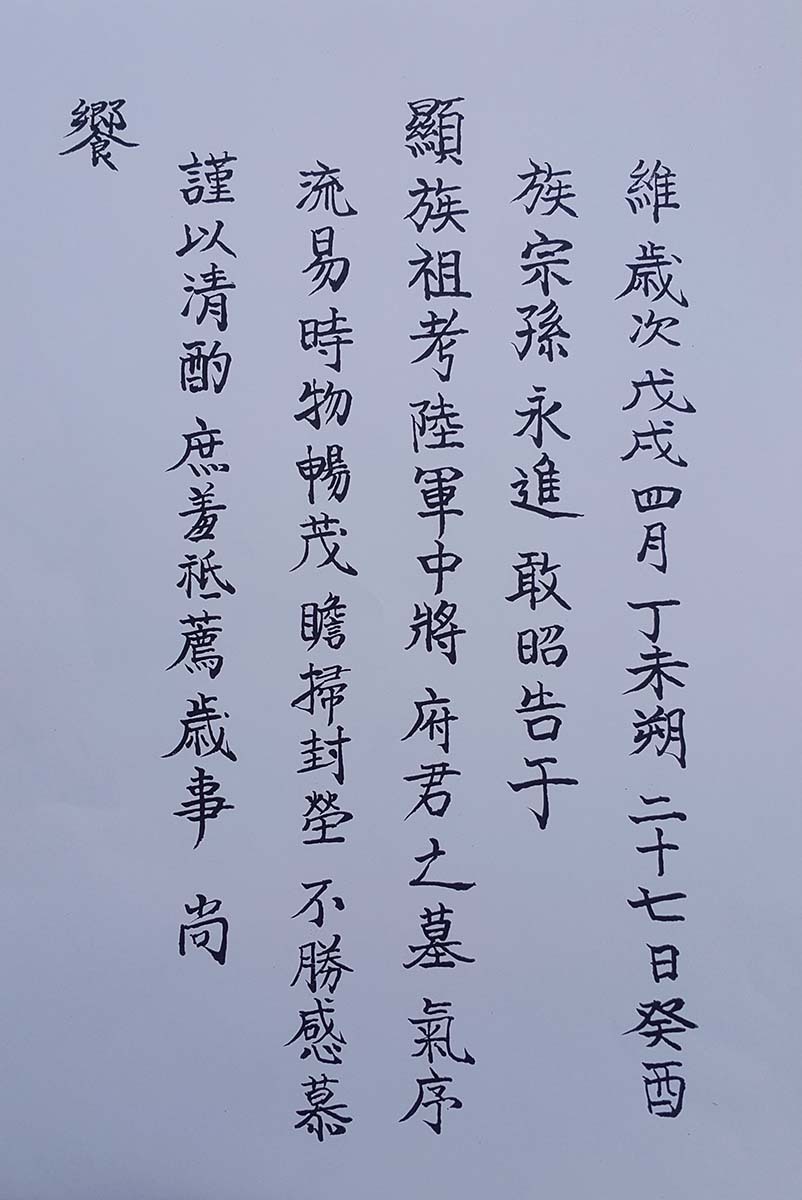 維 歲次 戊戌 四月 丁未朔 二十七日 癸酉
族宗孫 永進 敢昭告于
顯族祖考 陸軍中將 府君之墓 氣序
流易 時物暢茂 瞻掃封塋 不勝感慕
謹以清酌 庶羞祗薦歲事 尙
饗